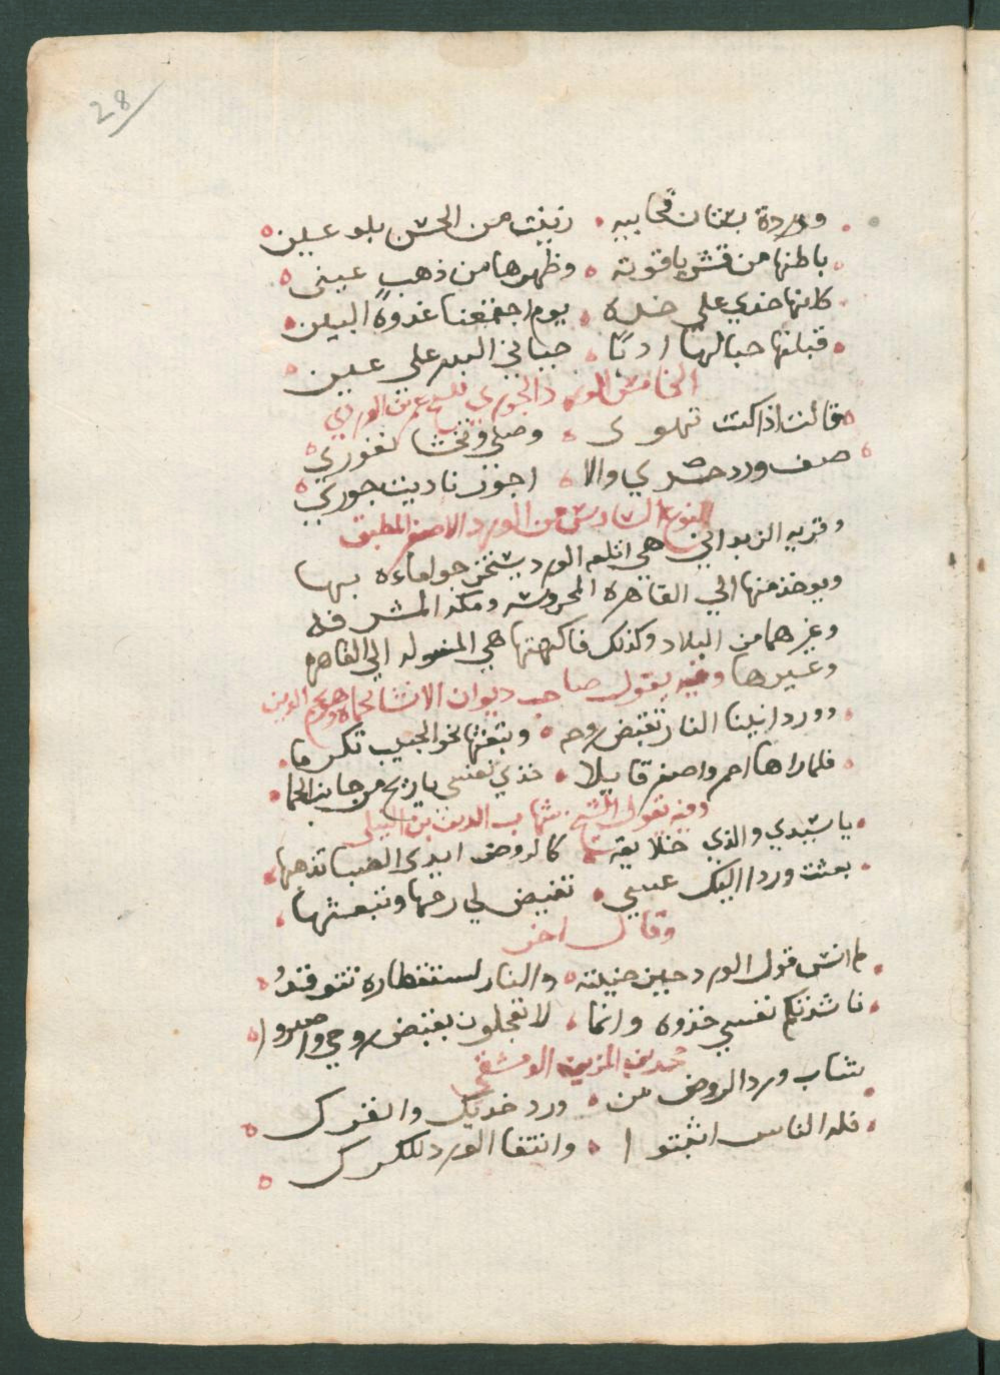 28
ووردة بستان قحابيه • زينت من الحسن بلوعين
باطنها من قشر ياقوتة • وظهرها من ذهب عيني
كانها خدي علي خده • يوم اجتمعنا غدوة البين
قبلتها حبا لها ادبا • حبا في البدر على عين
الخامس الورد الجوري للشيخ عمر بن الوردي
قالت اذا كنت تهوى • وصلي وتخشا نفوري
صف ورد خدي والا • اجوز ناديت جوري
النوع السادس من الورد الاصفر المطبق
وقريه الزبداني هي اتلعه الورد يستخرجوا ماءه بها
ويوخذ منها الي القاهره المحروسه ومكه المشرفه
وغيرهما من البلاد وكذلك فاكهتها هي المنقوله الي القاهره
وغيرها وفيه يقول صاحب ديوان الانشا بحماه
وورد اتينا النار تقبض روحه • وبتعثها نحو الحبيب تكرما
فلما راها احمر واصفر قايلا • خذي نفسي ياريح من جانب الحما
وفيه يقول الشيخ شهاب الدين بن النبلي
ياسيدي والذي خلايقه • كالروض ايدي الصبا تذهبها
بعثت وردا اليك عسي • تقبض لي رحمها وتبعثها
وقال اخر
لم انس قول الورد حين جنيته • والنار لستقطاره تتوقد
ناشدتكم نفسي خذوه وانما • لا تعجلون بقبض روحي واصبروا
المزين الدمشقي
شاب ورد الروض من • ورد خديك والفرك
فله الناس اثبتوا • وانتفا الورد للكرك